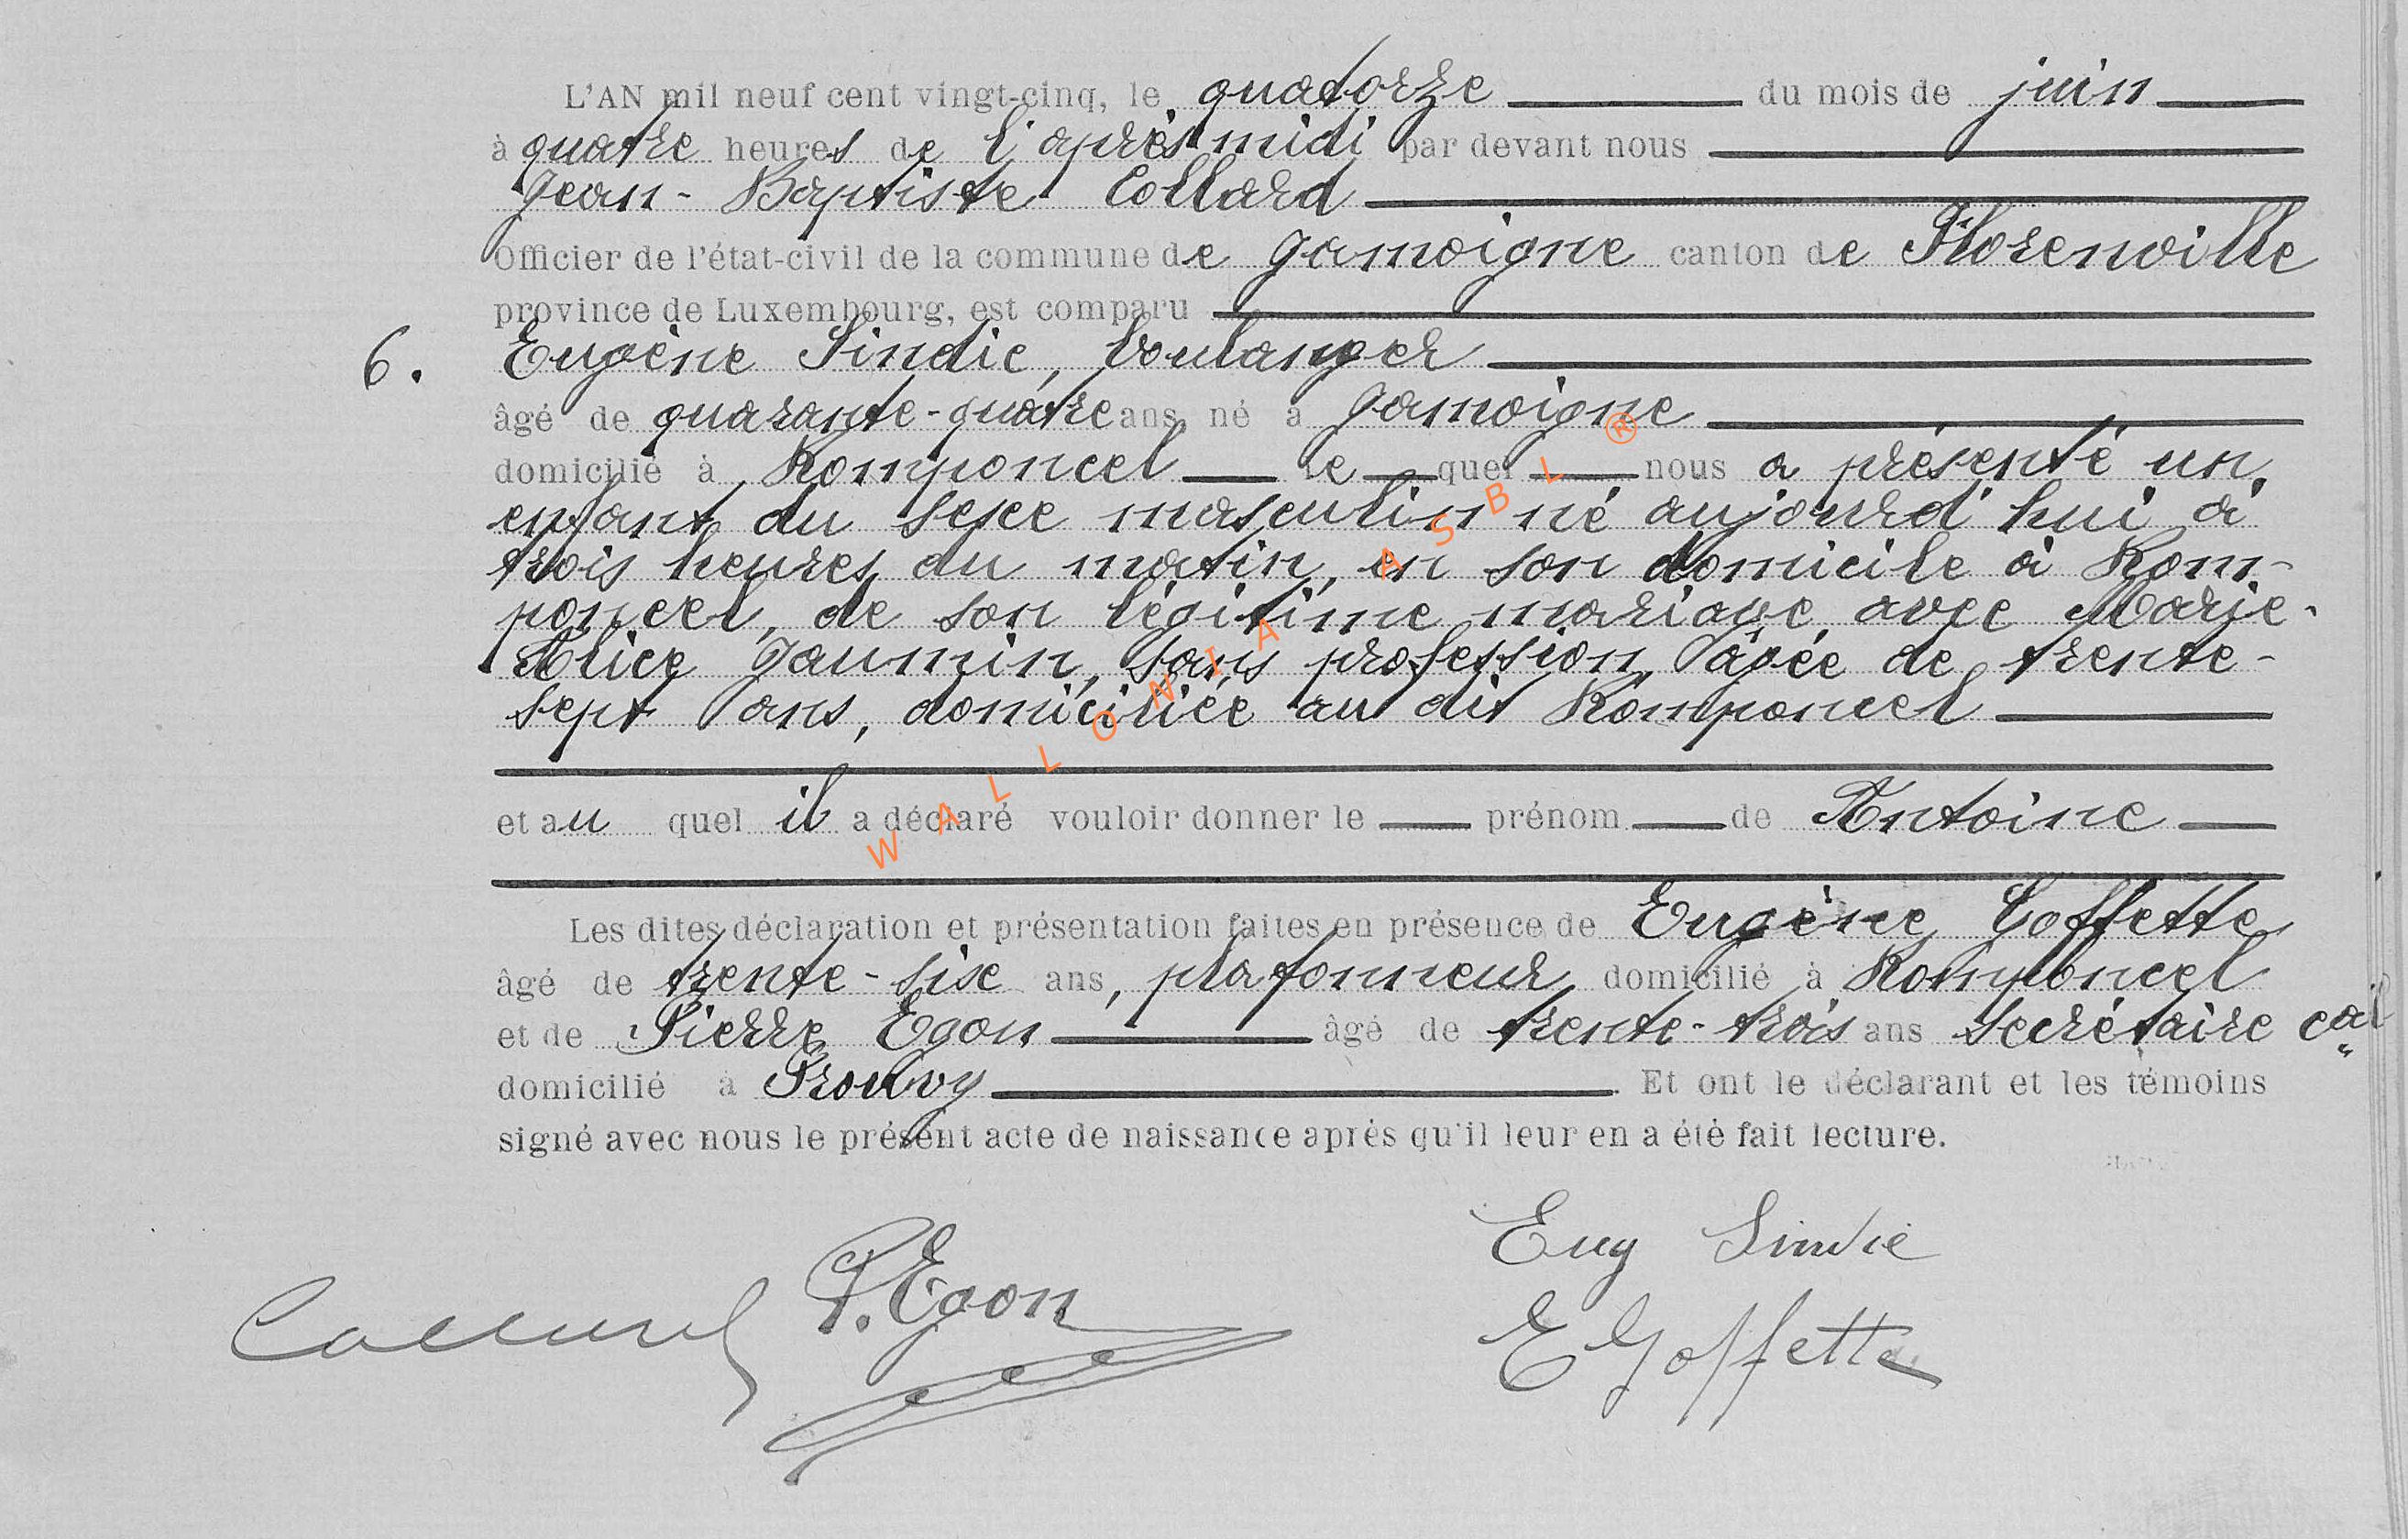 L'AN mil neuf cent vingt-cinq, le quatorze du mois de juin
à quatre heures de l'après midi par devant nous
Jean-Baptiste Collard
Officier de l'état-civil de la commune de Jamoigne canton de Florenville
province de Luxembourg, est comparu
6. Eugène Sindic, boulanger
âgé de quarante-quatre ans né à Jamoigne
domicilié à Romponcel le quel nous a présenté un
enfant du sexe masculin né aujourd'hui à
trois heures du matin, en son domicile à Rom-
poncel, de son légitime mariage avec Marie-
Alice Jaumin, sans profession, âgée de trente-
sept ans, domiciliée au dit Romponcel
et au quel il a déclaré vouloir donner le prénom de Antoine
Les dites déclaration et présentation faites en présence de Eugène Goffette
âgé de trente-six ans, plafonneur domicilié à Romponcel
et de Pierre Egon âgé de trente-trois ans secrétaire cal
domicilié à Prouvy. Et ont le déclarant et les témoins
signé avec nous le présent acte de naissance après qu'il leur en a été fait lecture.
Eug Sindic
Collard P. Egon
E Goffette
WALLONIA ASBL ®